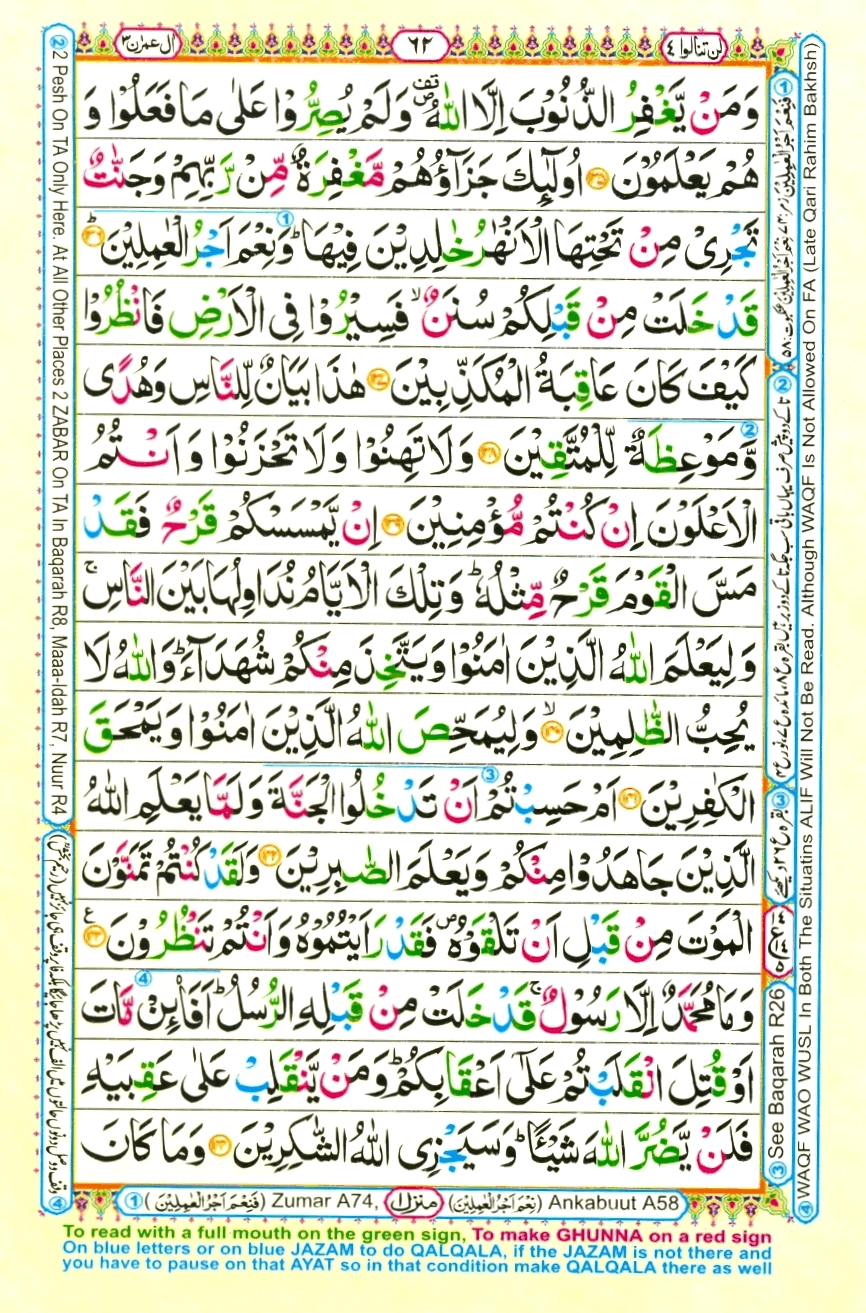 لن تنالوا ٤
٦٢
اٰل عمرٰن ٣
وَمَنْ يَّغْفِرُ الذُّنُوْبَ اِلَّا اللّٰهُ ۪۠ وَلَمْ يُصِرُّوْا عَلٰى مَا فَعَلُوْا وَ
هُمْ يَعْلَمُوْنَ ﴿۱۳۵﴾ اُولٰٓئِكَ جَزَآؤُهُمْ مَّغْفِرَةٌ مِّنْ رَّبِّهِمْ وَجَنّٰتٌ
تَجْرِیْ مِنْ تَحْتِهَا الْاَنْهٰرُ خٰلِدِیْنَ فِیْهَا ؕ وَنِعْمَ اَجْرُ الْعٰمِلِیْنَ ﴿۱۳۶﴾ؕ
قَدْ خَلَتْ مِنْ قَبْلِكُمْ سُنَنٌ ۙ فَسِیْرُوْا فِی الْاَرْضِ فَانْظُرُوْا
كَیْفَ كَانَ عَاقِبَةُ الْمُكَذِّبِیْنَ ﴿۱۳۷﴾ هٰذَا بَیَانٌ لِّلنَّاسِ وَهُدًی
وَّمَوْعِظَةٌ لِّلْمُتَّقِیْنَ ﴿۱۳۸﴾ وَلَا تَهِنُوْا وَلَا تَحْزَنُوْا وَاَنْتُمُ
الْاَعْلَوْنَ اِنْ كُنْتُمْ مُّؤْمِنِیْنَ ﴿۱۳۹﴾ اِنْ یَّمْسَسْكُمْ قَرْحٌ فَقَدْ
مَسَّ الْقَوْمَ قَرْحٌ مِّثْلُهٗ ؕ وَتِلْكَ الْاَیَّامُ نُدَاوِلُهَا بَیْنَ النَّاسِ ۚ
وَلِیَعْلَمَ اللّٰهُ الَّذِیْنَ اٰمَنُوْا وَیَتَّخِذَ مِنْكُمْ شُهَدَآءَ ؕ وَاللّٰهُ لَا
یُحِبُّ الظّٰلِمِیْنَ ﴿۱۴۰﴾ۙ وَلِیُمَحِّصَ اللّٰهُ الَّذِیْنَ اٰمَنُوْا وَیَمْحَقَ
الْكٰفِرِیْنَ ﴿۱۴۱﴾ اَمْ حَسِبْتُمْ اَنْ تَدْخُلُوا الْجَنَّةَ وَلَمَّا یَعْلَمِ اللّٰهُ
الَّذِیْنَ جَاهَدُوْا مِنْكُمْ وَیَعْلَمَ الصّٰبِرِیْنَ ﴿۱۴۲﴾ وَلَقَدْ كُنْتُمْ تَمَنَّوْنَ
الْمَوْتَ مِنْ قَبْلِ اَنْ تَلْقَوْهُ ۪ فَقَدْ رَاَیْتُمُوْهُ وَاَنْتُمْ تَنْظُرُوْنَ ﴿۱۴۳﴾ع
وَمَا مُحَمَّدٌ اِلَّا رَسُوْلٌ ۚ قَدْ خَلَتْ مِنْ قَبْلِهِ الرُّسُلُ ؕ اَفَا۠ئِنْ مَّاتَ
اَوْ قُتِلَ انْقَلَبْتُمْ عَلٰۤی اَعْقَابِكُمْ ؕ وَمَنْ یَّنْقَلِبْ عَلٰی عَقِبَیْهِ
فَلَنْ یَّضُرَّ اللّٰهَ شَیْـًٔا ؕ وَسَیَجْزِی اللّٰهُ الشّٰكِرِیْنَ ﴿۱۴۴﴾ وَمَا كَانَ
① (فَنِعْمَ اَجْرُ الْعٰمِلِیْنَ) Zumar A74, منزل ۱ (نِعْمَ اَجْرُ الْعٰمِلِیْنَ) Ankabuut A58
To read with a full mouth on the green sign, To make GHUNNA on a red sign
On blue letters or on blue JAZAM to do QALQALA, if the JAZAM is not there and
you have to pause on that AYAT so in that condition make QALQALA there as well
② 2 Pesh On TA Only Here. At All Other Places 2 ZABAR On TA In Baqarah R8, Maaa-Idah R7, Nuur R4
③ See Baqarah R26
④ WAQF WAO WUSL In Both The Situatins ALIF Will Not Be Read. Although WAQF Is Not Allowed On FA (Late Qari Rahim Bakhsh)